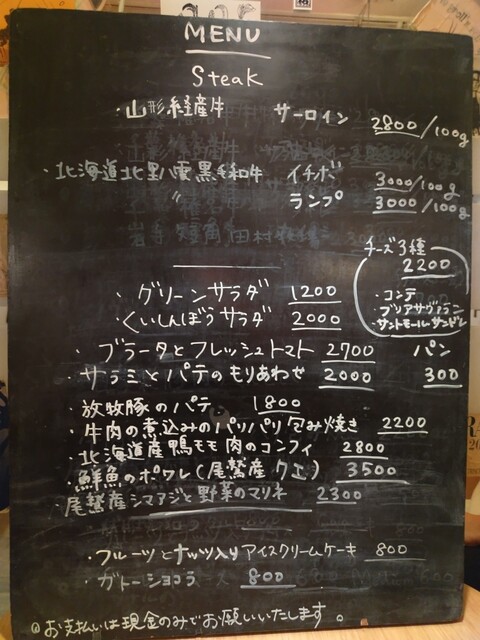 MENU
Steak
・山形経産牛 サーロイン 2800/100g
・北海道北里八雲黒毛和牛 イチボ 3000/100g
〃 ランプ 3000/100g
チーズ3種
2200
・コンテ
・ブリアサヴァラン
・サントモールサンドレ
・グリーンサラダ 1200
・くいしんぼうサラダ 2000
・ブラータとフレッシュトマト 2700
パン
300
・サラミとパテのもりあわせ 2000
・放牧豚のパテ 1800
・牛肉の煮込みのパリパリ包み焼き 2200
・北海道産鴨モモ肉のコンフィ 2800
・鮮魚のポワレ(尾鷲産クエ) 3500
・尾鷲産シマアジと野菜のマリネ 2300
・フルーツとナッツ入りアイスクリームケーキ 800
・ガトーショコラ 800
◎お支払いは現金のみでお願いいたします。